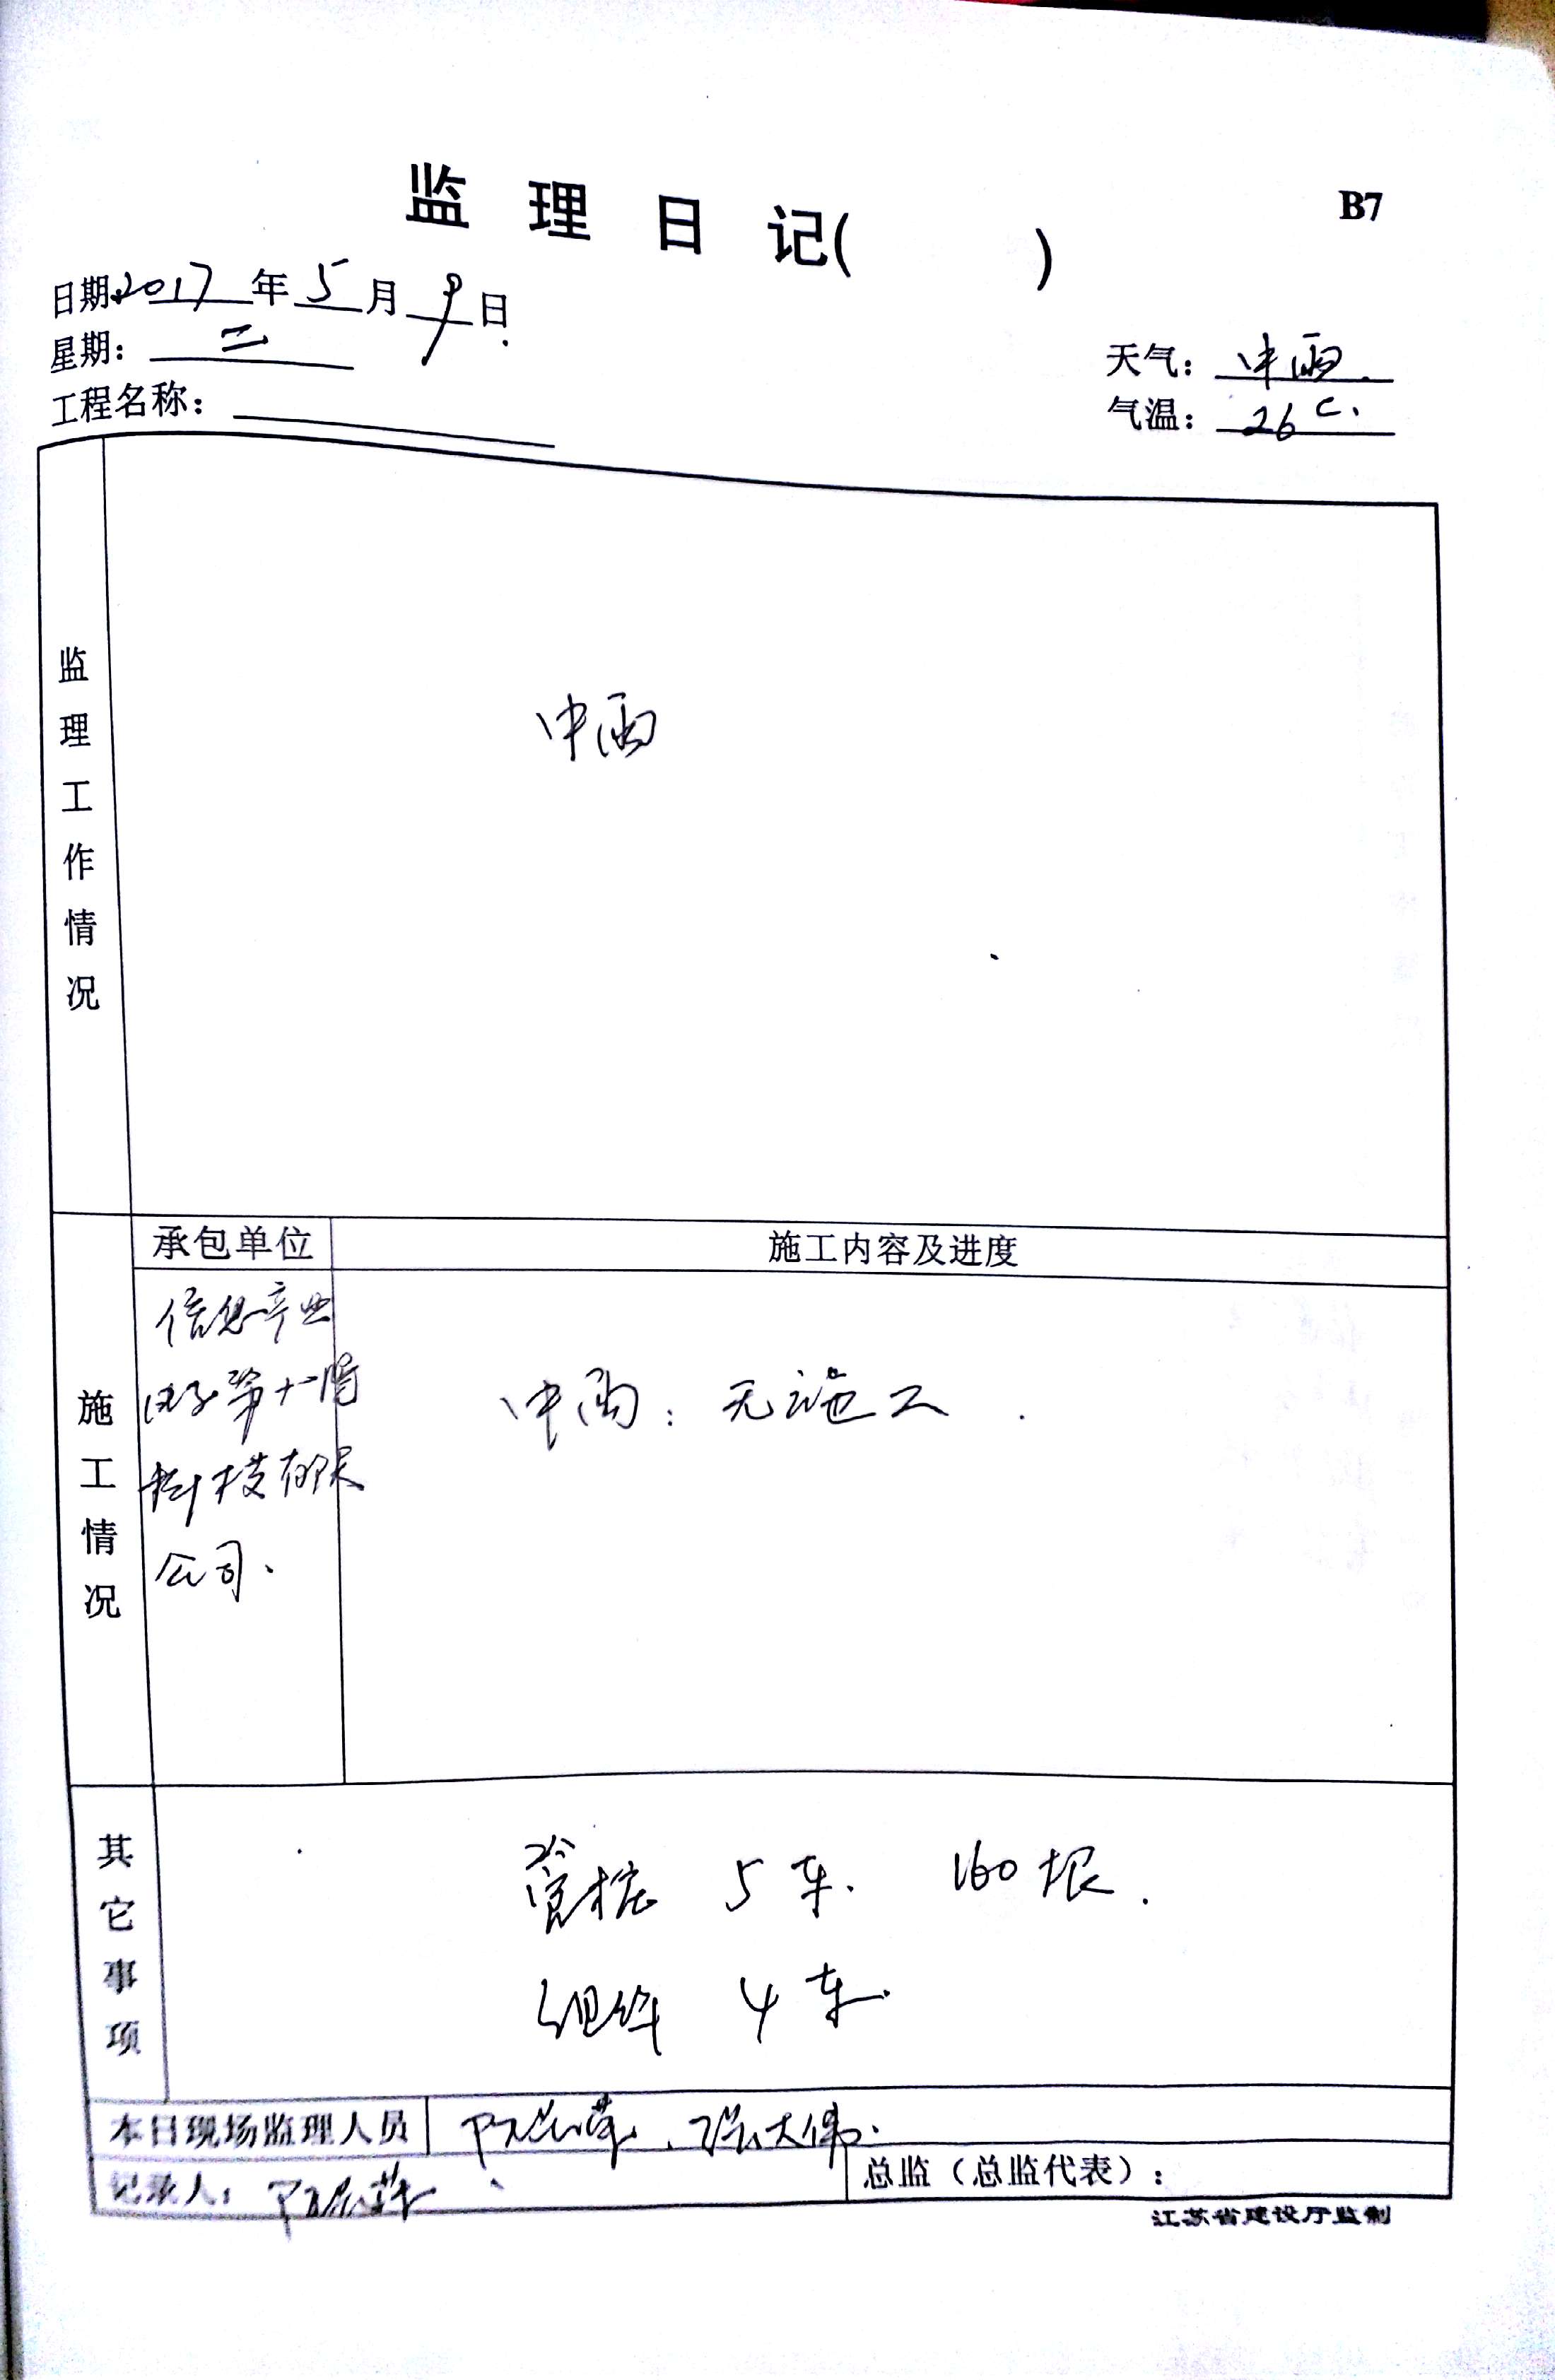 监理日记(　　)
B7
日期:2017年5月9日.
星期:二
天气:中雨.
工程名称:
气温:26℃.
监理工作情况
中雨
承包单位
施工内容及进度
施工情况
信息产业
电子第十一设
科技有限
公司.
中雨:无施工.
其它事项
管桩 5车. 160根.
组件 4车.
本日现场监理人员
张大伟.
记录人:
总监(总监代表):
江苏省建设厅监制